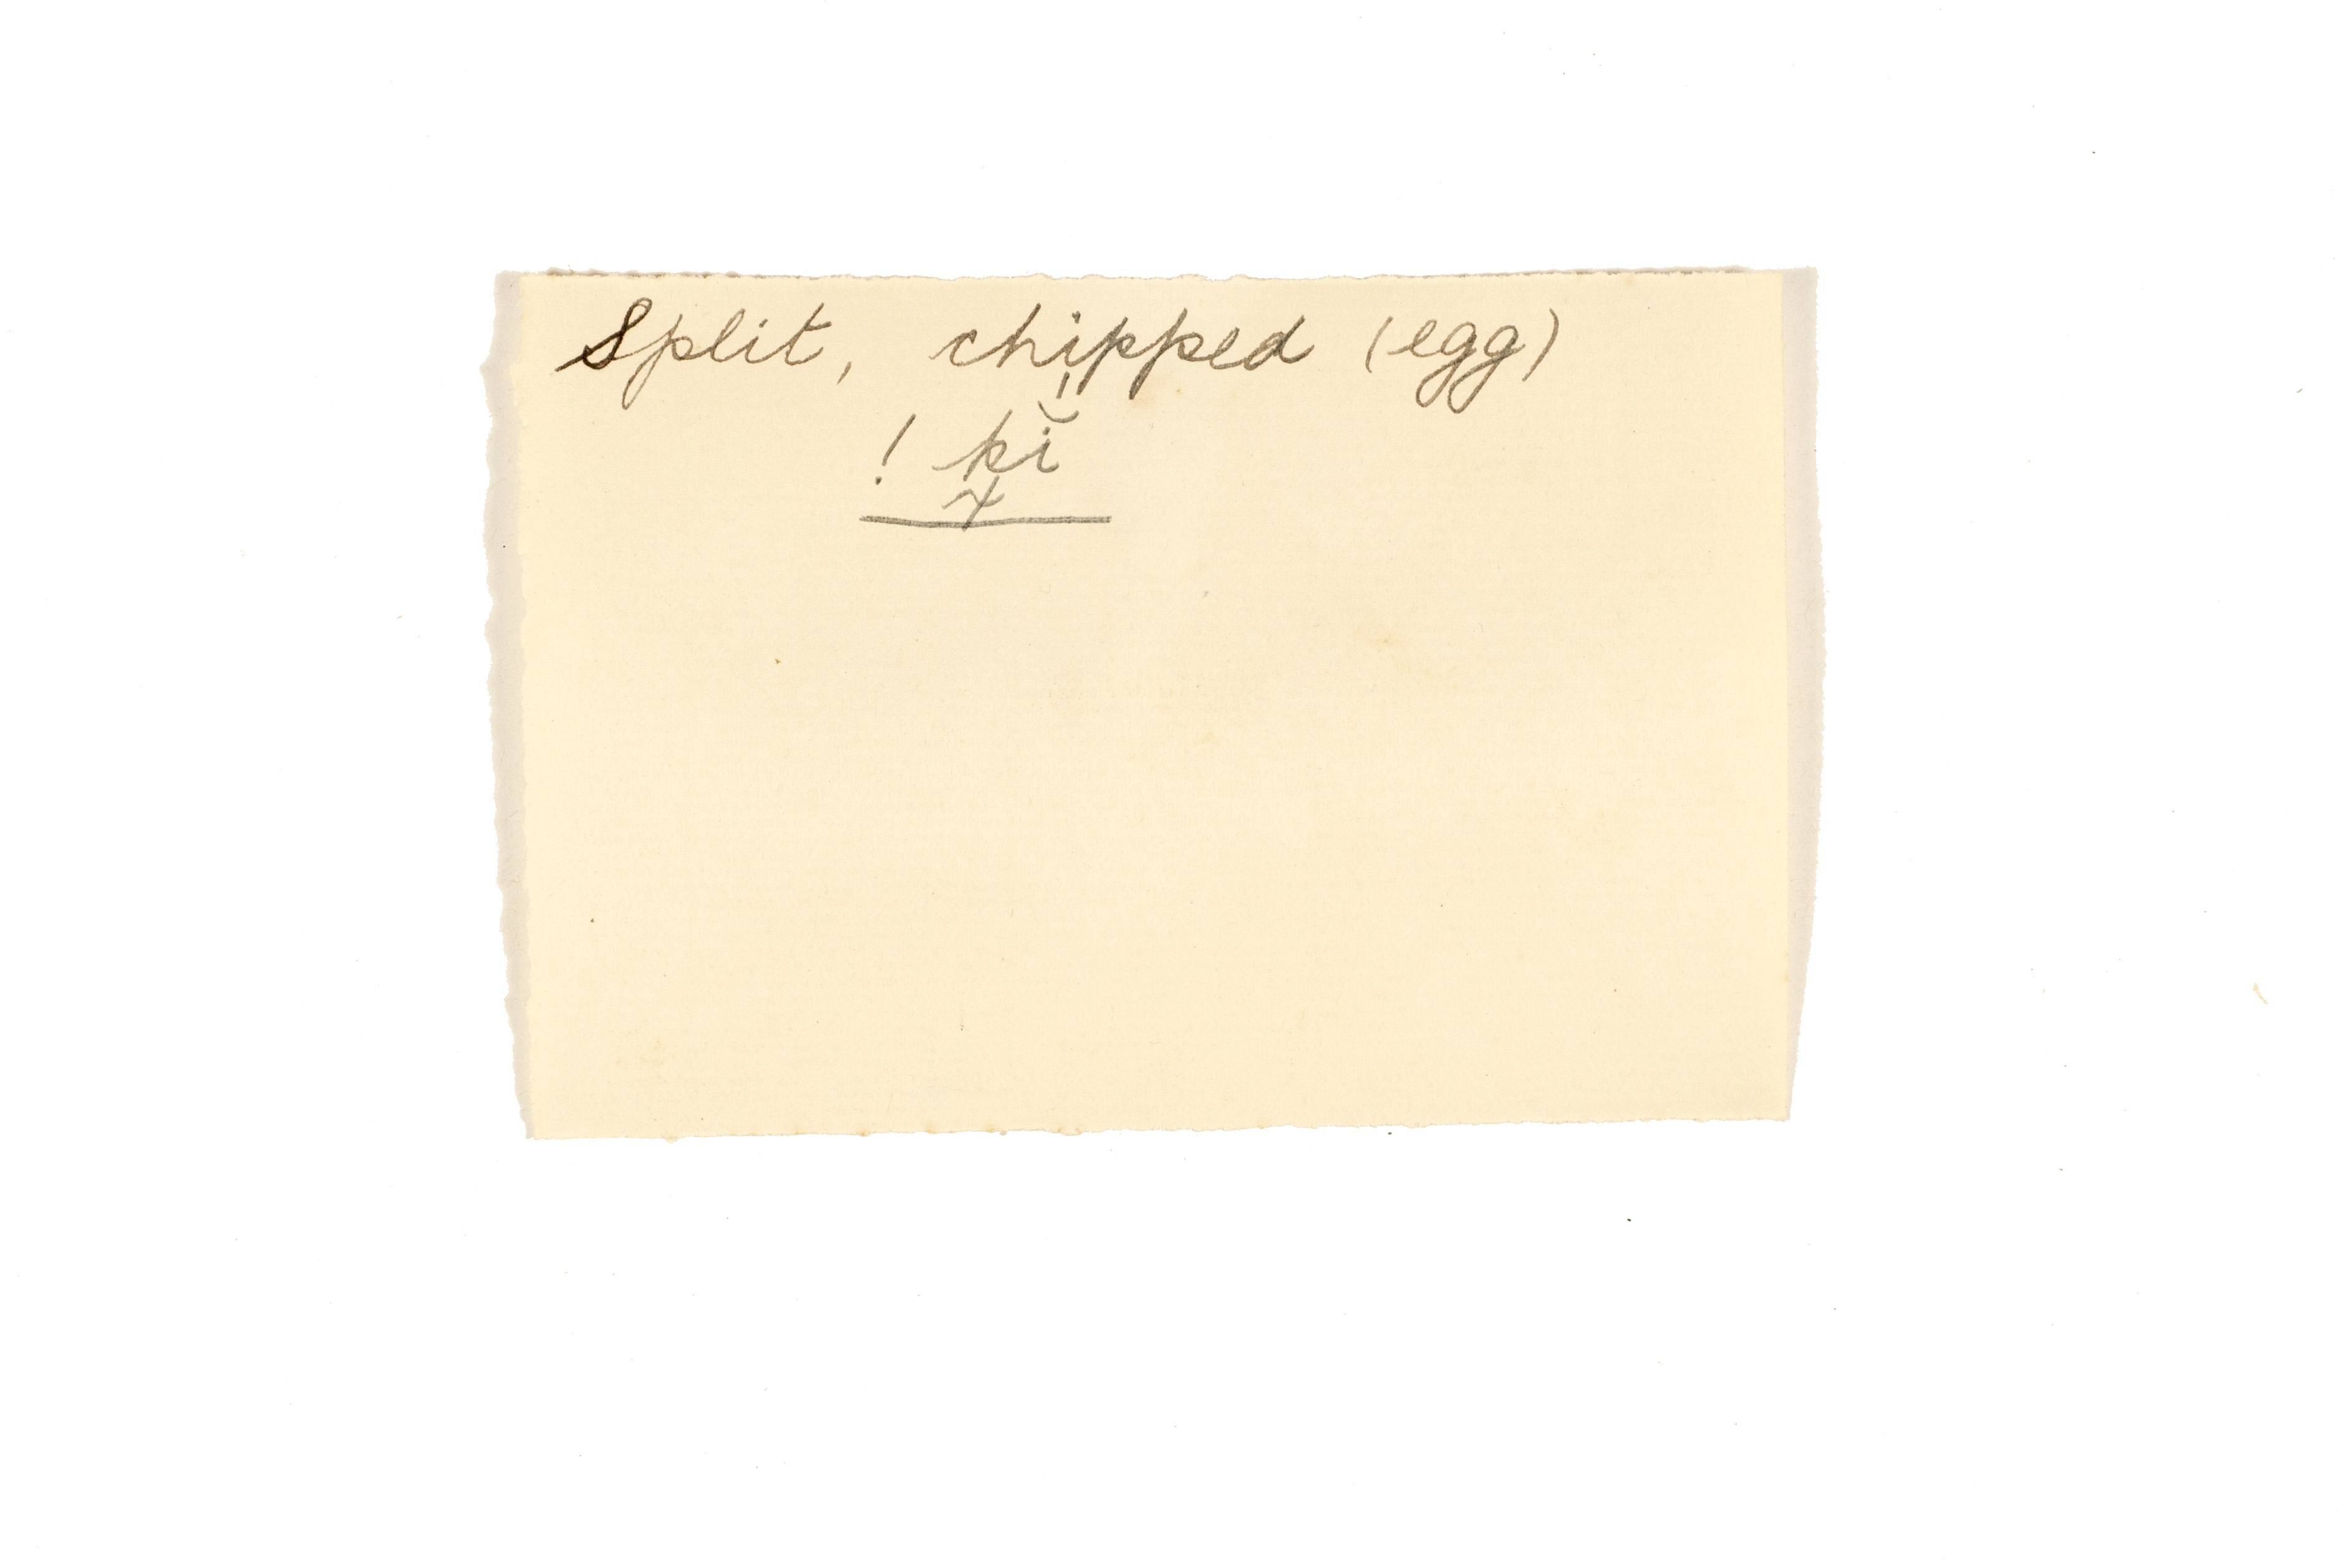 Split, chipped (egg)
! kĭ́
x